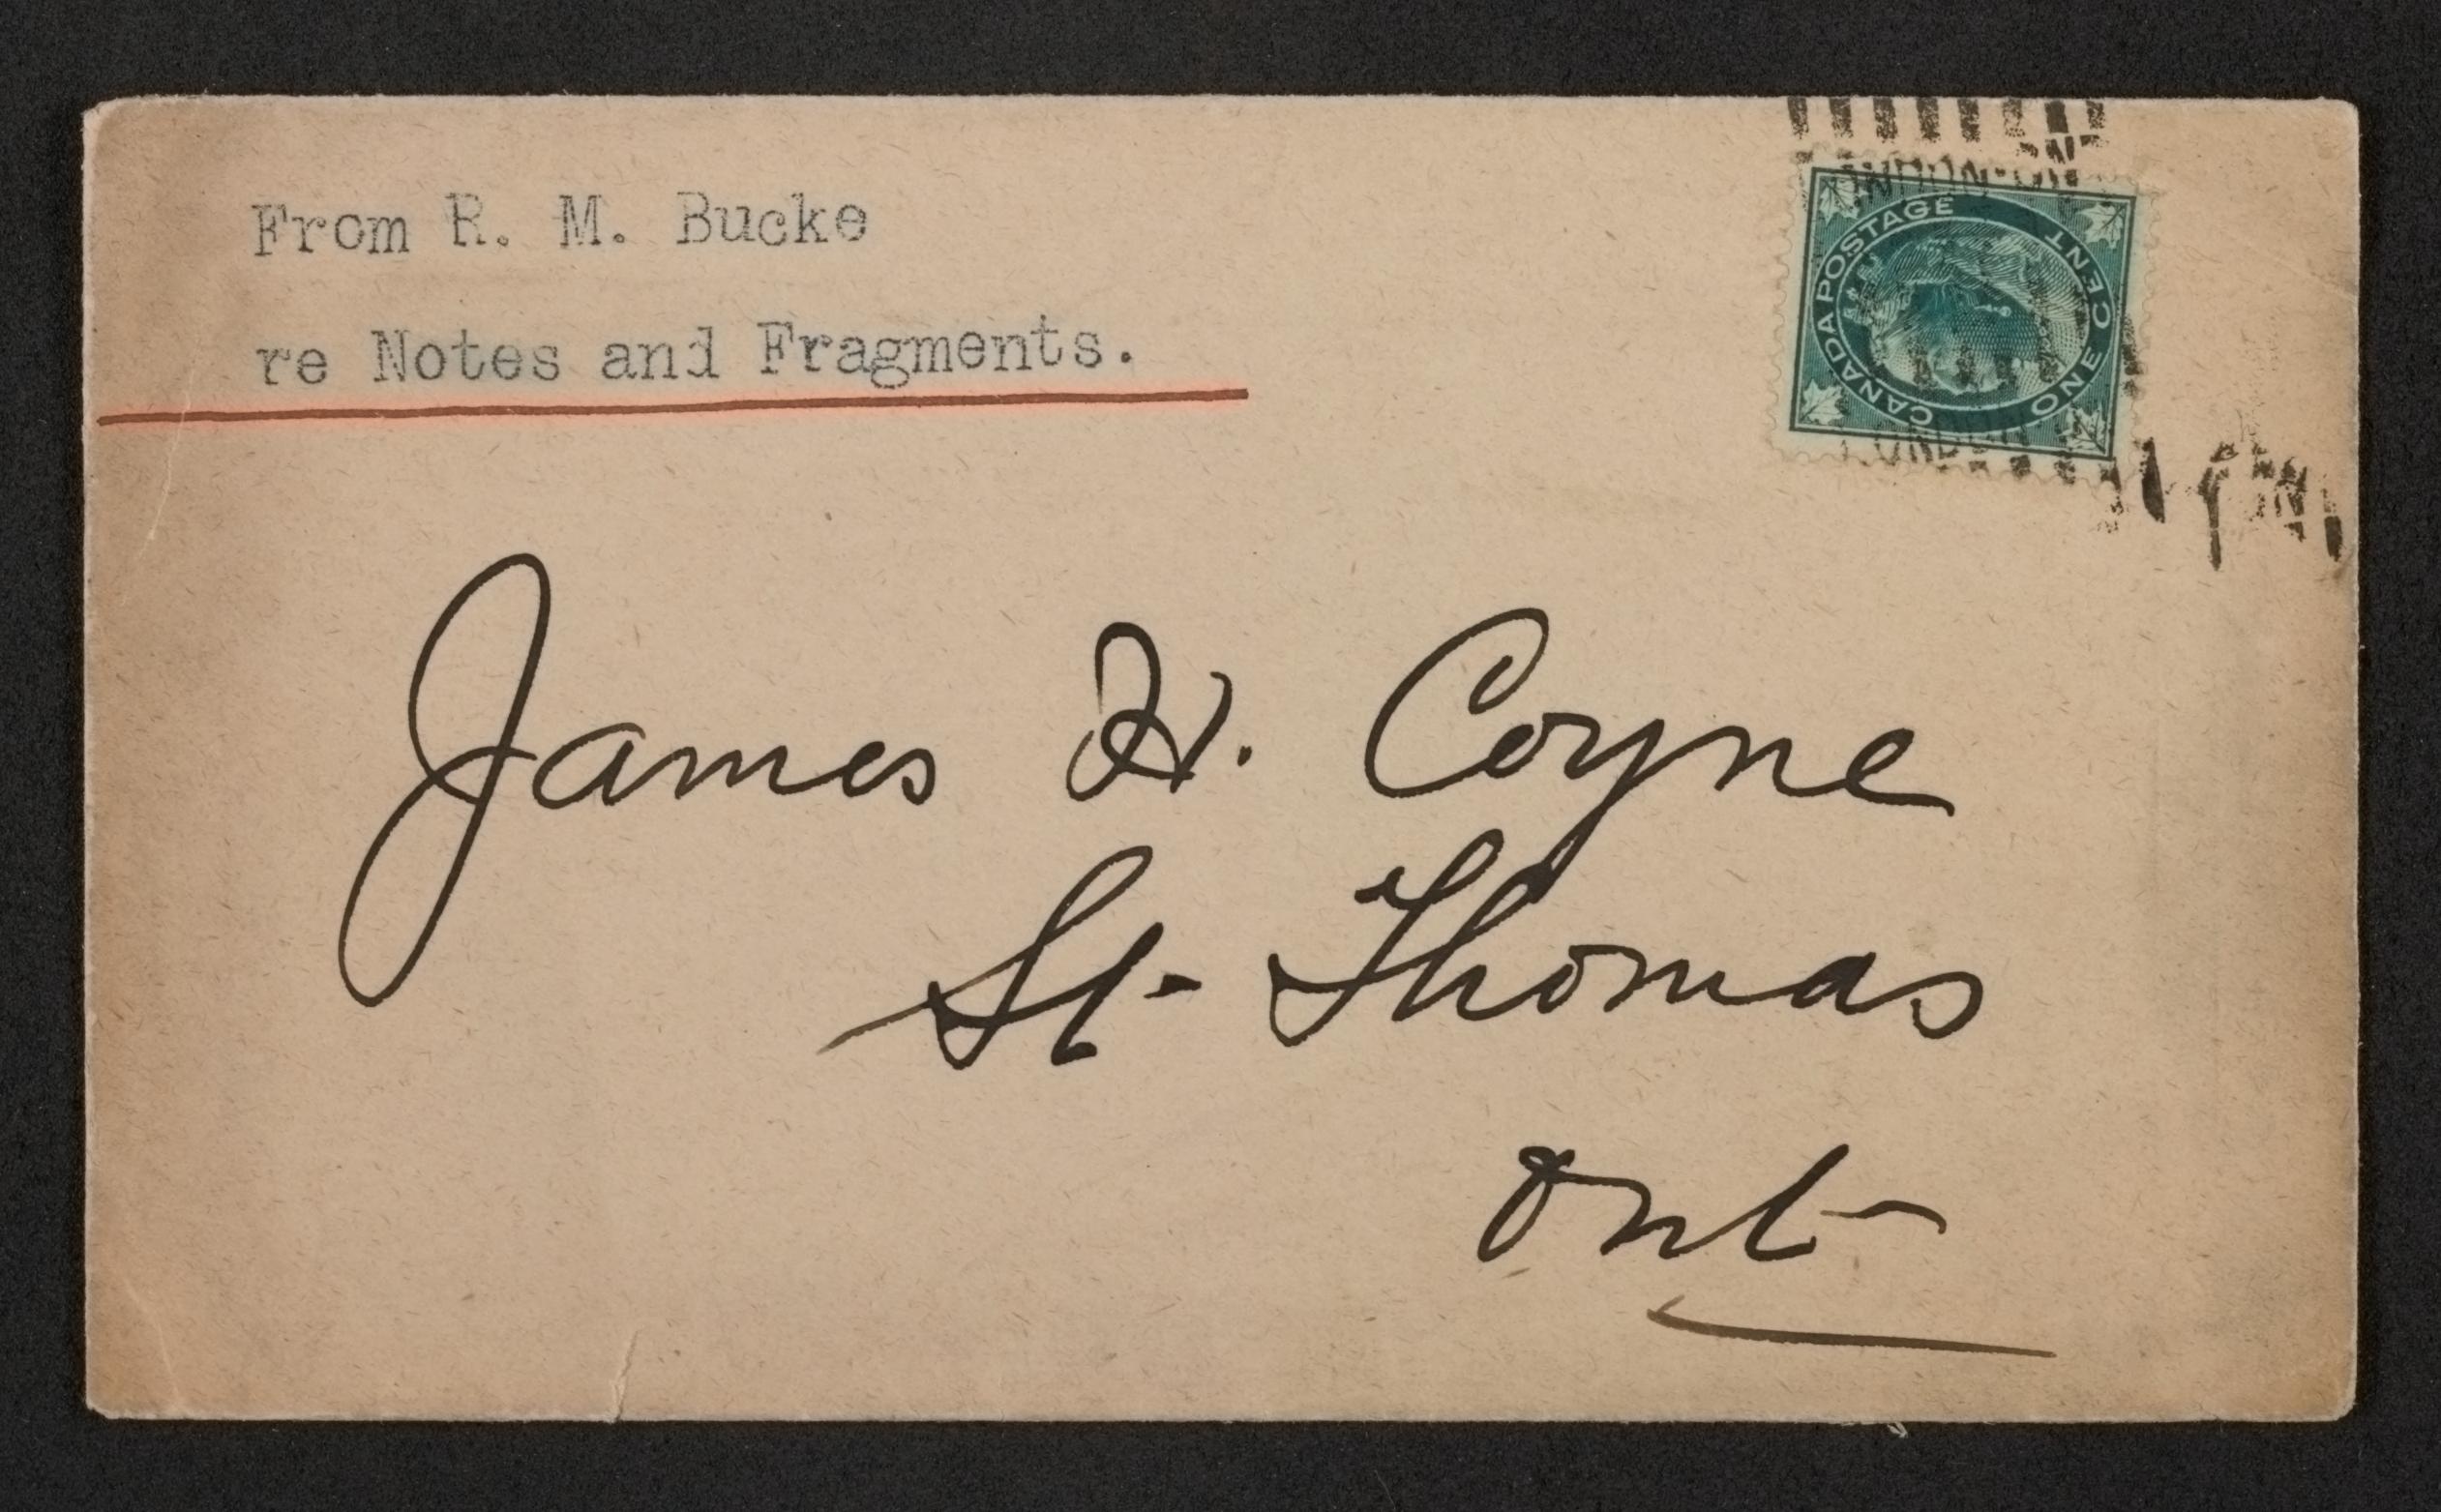 From R. M. Bucke
re Notes and Fragments.
CANADA POSTAGE
ONE CENT
LONDON
James H. Coyne
St- Thomas
Ont-